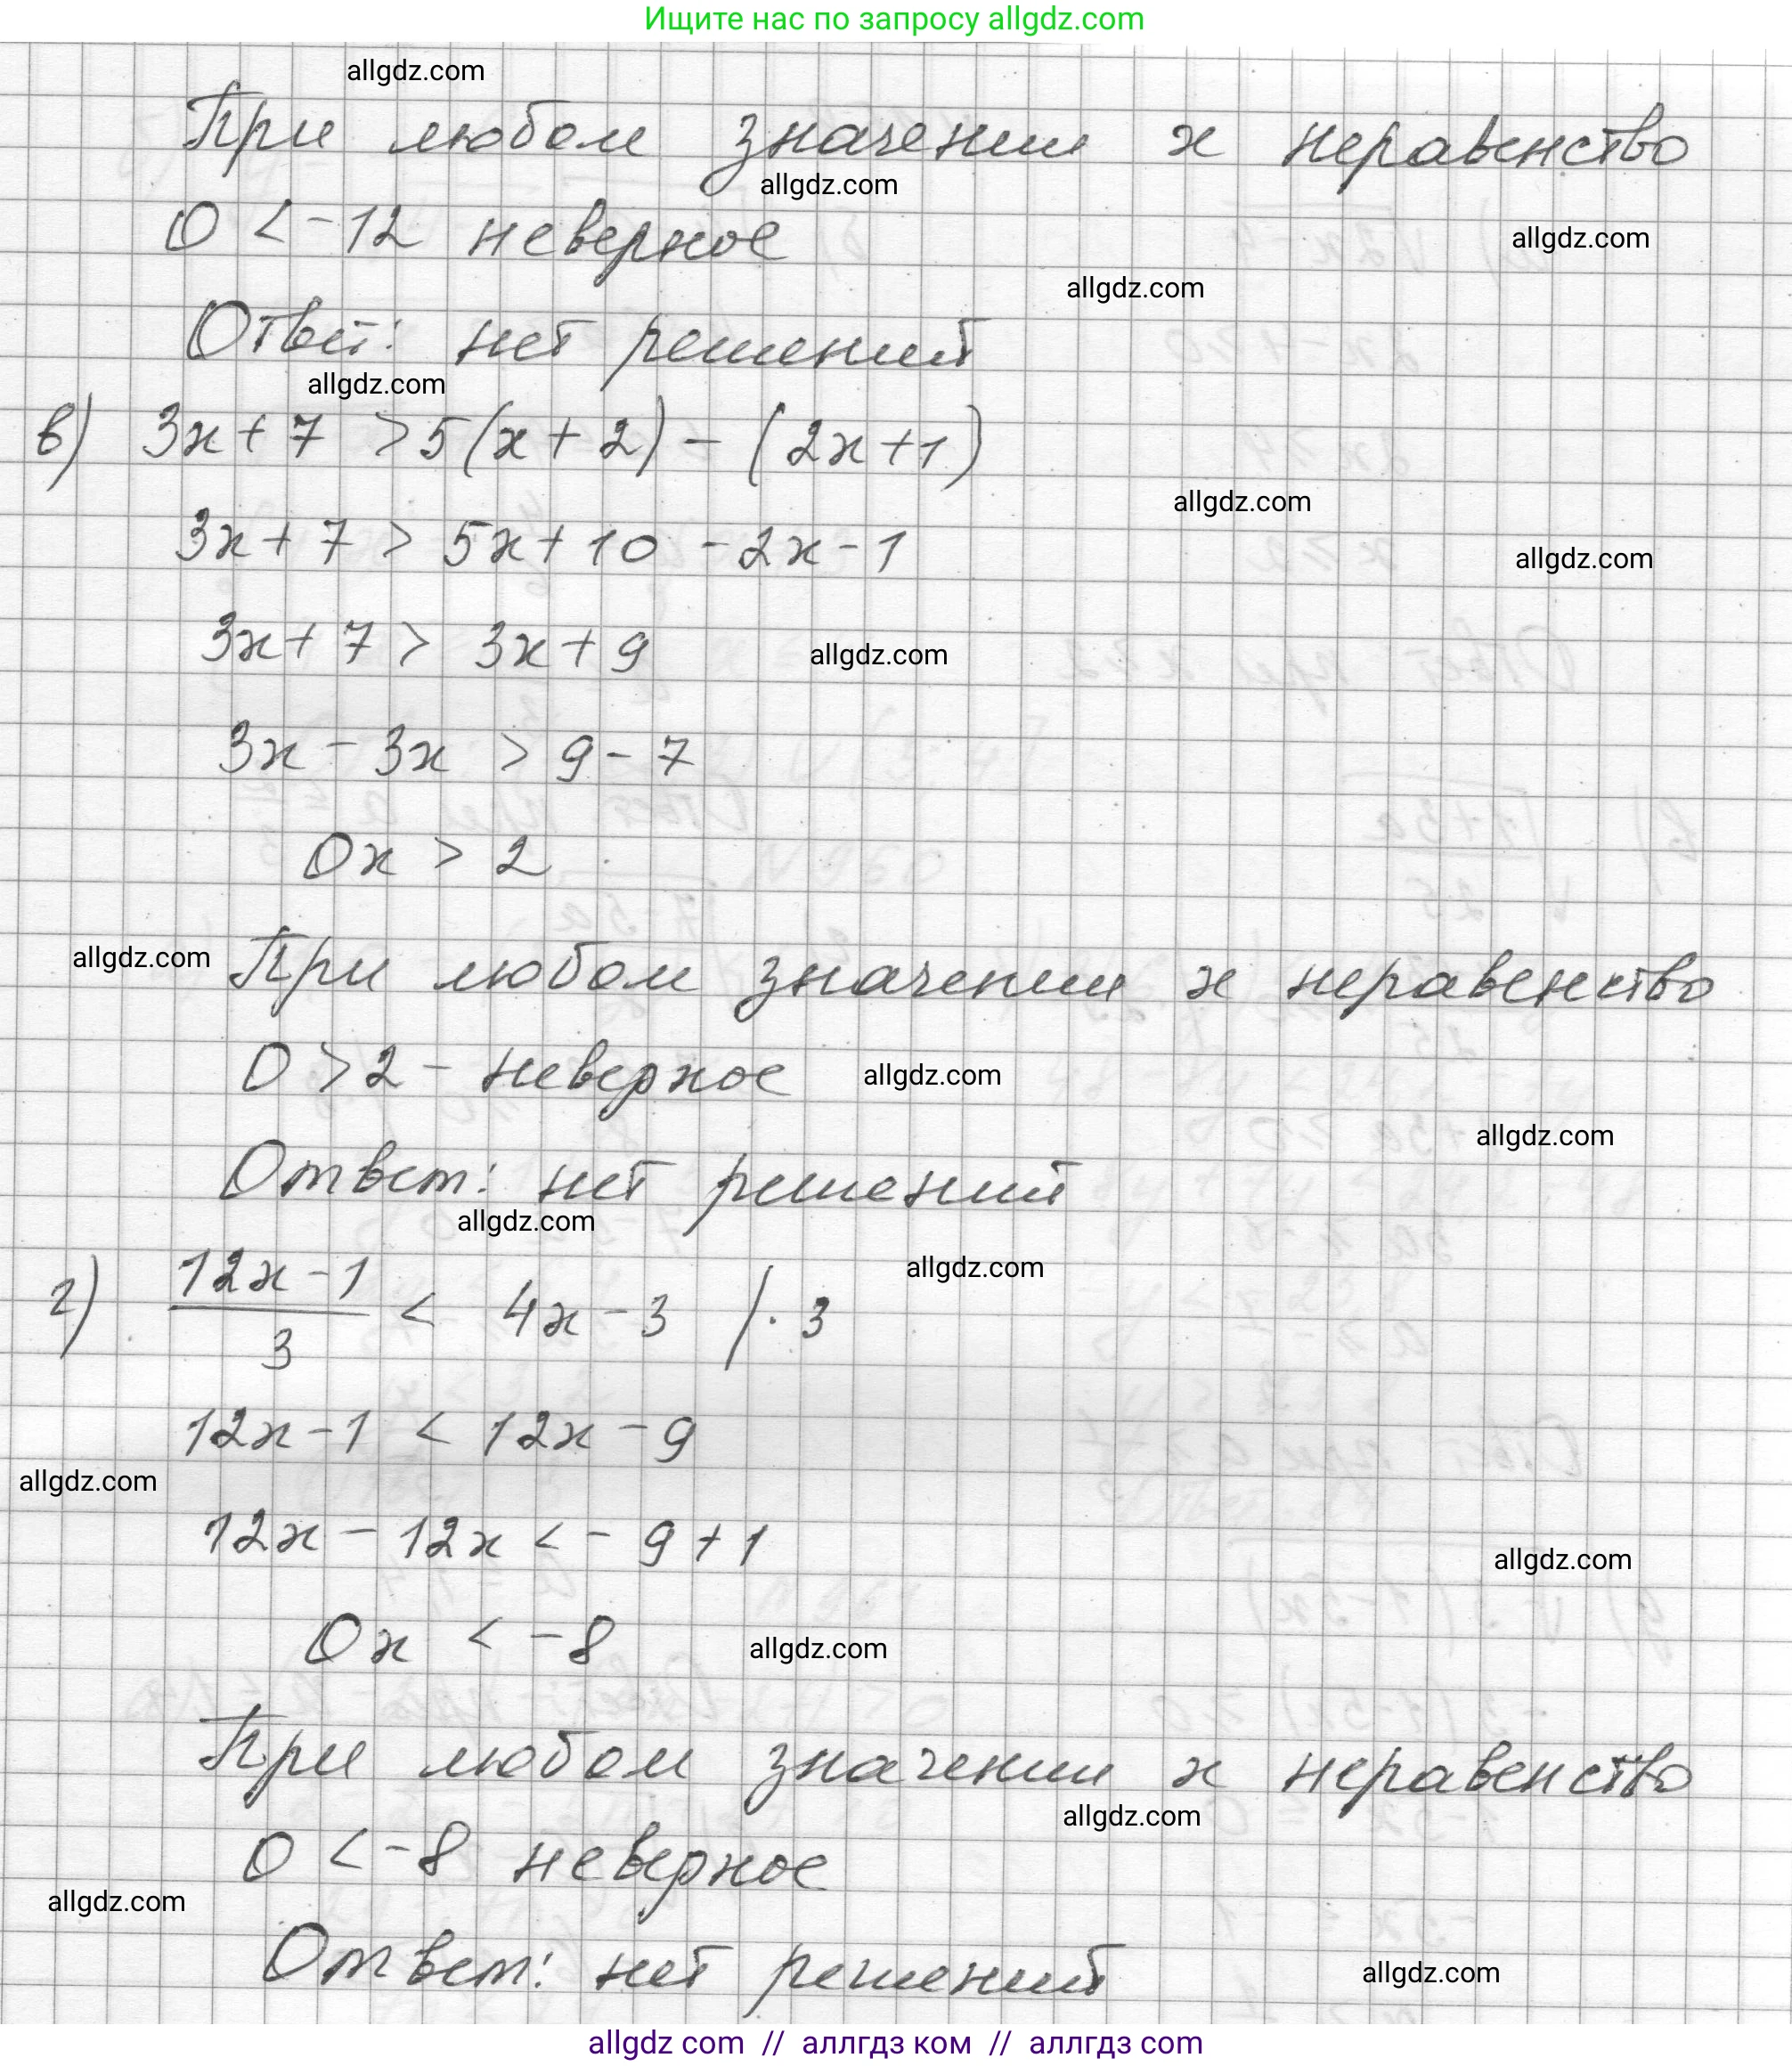 Ищите нас по запросу allgdz.com
allgdz.com
При любом значении x неравенство
allgdz.com
0 < -12 неверное
allgdz.com
allgdz.com
Ответ: нет решений
allgdz.com
в) 3x + 7 > 5(x + 2) - (2x + 1)
allgdz.com
3x + 7 > 5x + 10 - 2x - 1
allgdz.com
3x + 7 > 3x + 9
allgdz.com
3x - 3x > 9 - 7
0x > 2
allgdz.com
При любом значении x неравенство
0 > 2 - неверное
allgdz.com
allgdz.com
Ответ: нет решений
allgdz.com
allgdz.com
г) \frac{12x - 1}{3} < 4x - 3 / · 3
12x - 1 < 12x - 9
allgdz.com
12x - 12x < - 9 + 1
allgdz.com
0x < -8
allgdz.com
При любом значении x неравенство
allgdz.com
0 < -8 неверное
allgdz.com
Ответ: нет решений
allgdz.com
allgdz com // аллгдз ком // аллгдз com